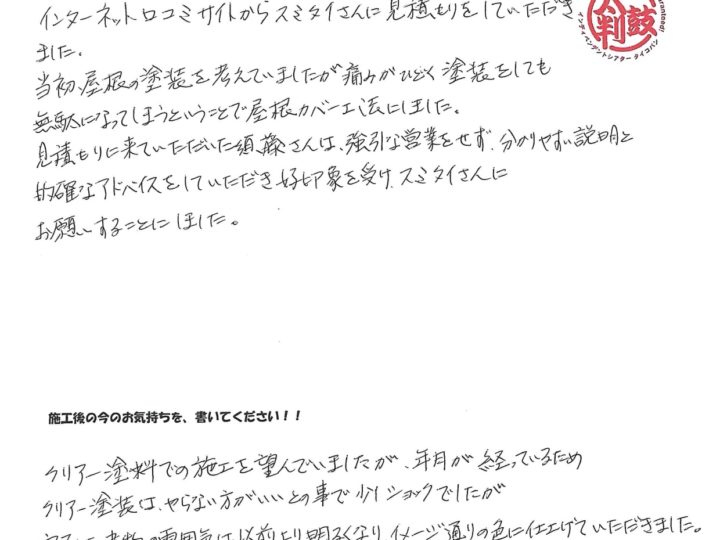 インターネット口コミサイトからスミタイさんに見積もりをしていただき
ました。
当初、屋根の塗装を考えていましたが痛みがひどく塗装をしても
無駄になってしまうということで屋根カバー工法にしました。
見積もりに来ていただいた須藤さんは、強引な営業をせず、分かりやすい説明と
的確なアドバイスをしていただき好印象を受け、スミタイさんに
お願いすることにしました。
鼓
判
インディペンデントシアター タイコバン
施工後の今のお気持ちを、書いてください!!
クリアー塗料での施工を望んでいましたが、年月が経っているため
クリアー塗装は、やらない方がいいとの事で少しショックでしたが
雰囲気は以前より明るくなり、イメージ通りの色に仕上げていただきました。